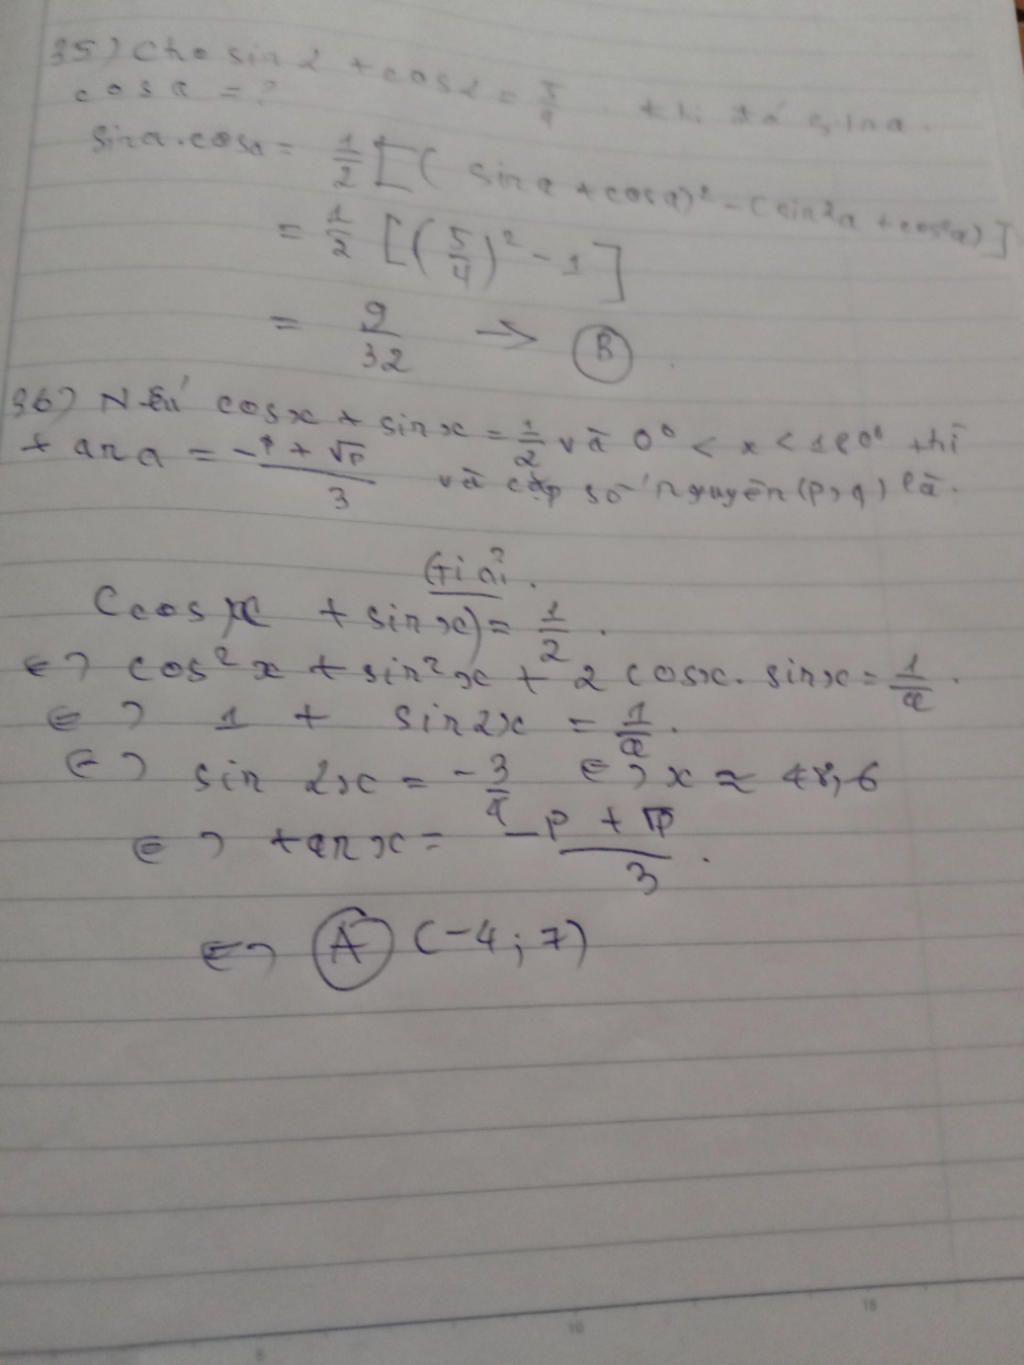 35) Cho sin2 + cos2 = 5/4 thì
cosa = ?
sina.cosa = 1/2 [( sina + cosa)² - (sin²a + cos²a)]
= 1/2 [(5/4)² - 1]
= 9/32 → B
36) Nếu cosx + sinx = 1/2 và 0° < x < 180° thì
tana = -p + √p / 3 và cặp số nguyên (p,q) là.
Giải.
(cosx + sinx) = 1/2.
⇔ cos²x + sin²x + 2 cosx. sinx = 1/a.
⇔ 1 + sin2x = 1/a.
⇔ sin 2x = -3/4 ⇔ x ≈ 48,6
⇔ tanx = -p + √p / 3.
⇔ A (-4; 7)
10